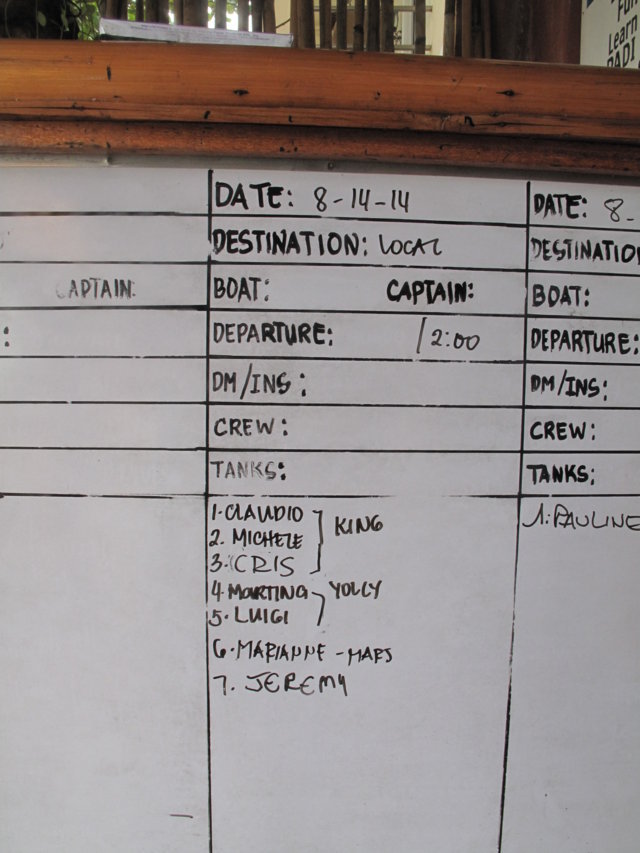 Fun
Learn
PADI
CAPTAIN:
:
DATE: 8-14-14
DESTINATION: LOCAL
BOAT: CAPTAIN:
DEPARTURE: 12:00
DM/INS:
CREW:
TANKS:
1. CLAUDIO
2. MICHELE KING
3. CRIS
4. MARTINA YOLLY
5. LUIGI
6. MARIANNE - MARS
7. JEREMY
DATE: 8-
DESTINATIO
BOAT:
DEPARTURE:
DM/INS:
CREW:
TANKS:
1. PAULINE